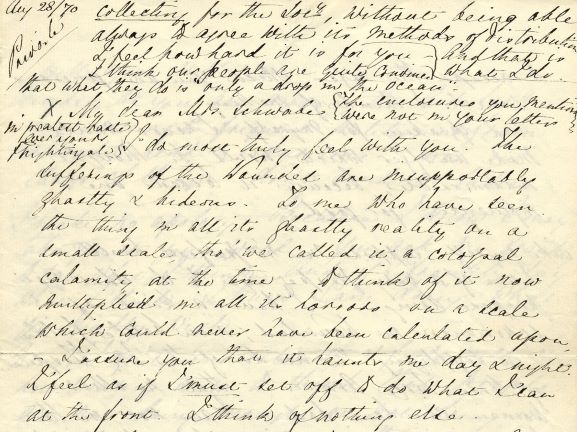 Aug 28/70
Private
collecting for the Socy, without being able
always to agree with its methods of distribution
I feel how hard it is for you - And that is
I think our people are quite convinced what I do.
that what they do is "only a drop in the ocean".
X My dear Mrs. Schwabe The enclosures you mention
were not in your letter
in greatest haste
ever yours
F Nightingale
I do most truly feel with you. The
sufferings of the Wounded are insupportably
ghastly & hideous. To me who have seen
the thing in all its ghastly reality on a
small scale tho' we called it a colossal
calamity at the time & think of it now
multiplied in all its horrors on a scale
which could never have been calculated upon,
- I assure you that it haunts me day & night.
I feel as if I must set off & do what I can
at the front. I think of nothing else.